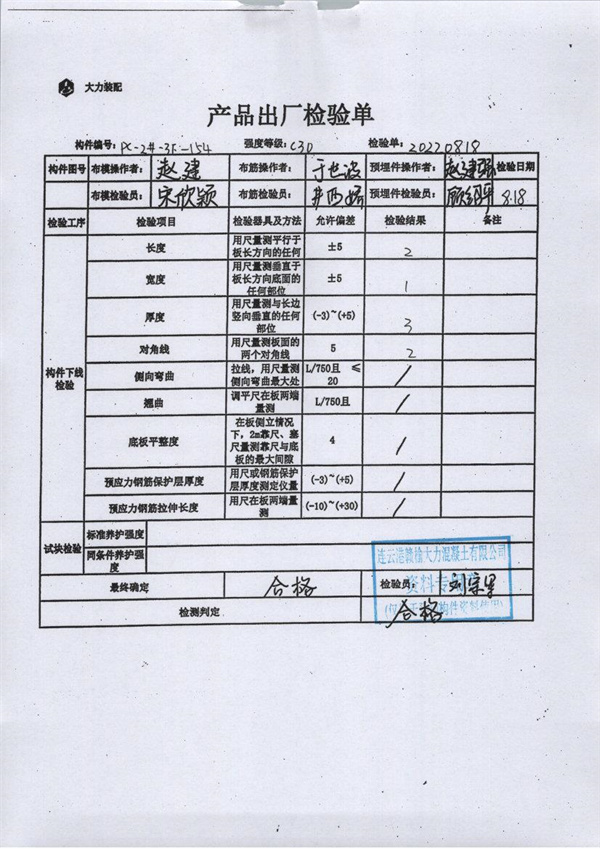 大力装配
产品出厂检验单
构件编号: PC-2#-3F-154 强度等级: C30 检验单: 20220818
构件图号 布模操作者: 赵建 布筋操作者: 于世波 预埋件操作者: 赵建 检验日期
布模检验员: 宋欣颖 布筋检验员: 预埋件检验员: 8.18
检验工序 检验项目 检验器具及方法 允许偏差 检验结果 备注
构件下线检验
长度 用尺量测平行于板长方向的任何 ±5 2
宽度 用尺量测垂直于板长方向底面的任何部位 ±5 1
厚度 用尺量测与长边竖向垂直的任何部位 (-3)~(+5) 3
对角线 用尺量测板面的两个对角线 5 2
侧向弯曲 拉线，用尺量测侧向弯曲最大处 L/750且 ≤20 /
翘曲 调平尺在板两端量测 L/750且 /
底板平整度 在板侧立情况下，2m靠尺、塞尺量测靠尺与底板的最大间隙 4 /
预应力钢筋保护层厚度 用尺或钢筋保护层厚度测定仪量 (-3)~(+5) /
预应力钢筋拉伸长度 用尺在板两端量测 (-10)~(+30) /
试块检验 标准养护强度
同条件养护强度
最终确定 合格 检验员:
检测判定 合格
连云港赣榆大力混凝土有限公司
资料专用章